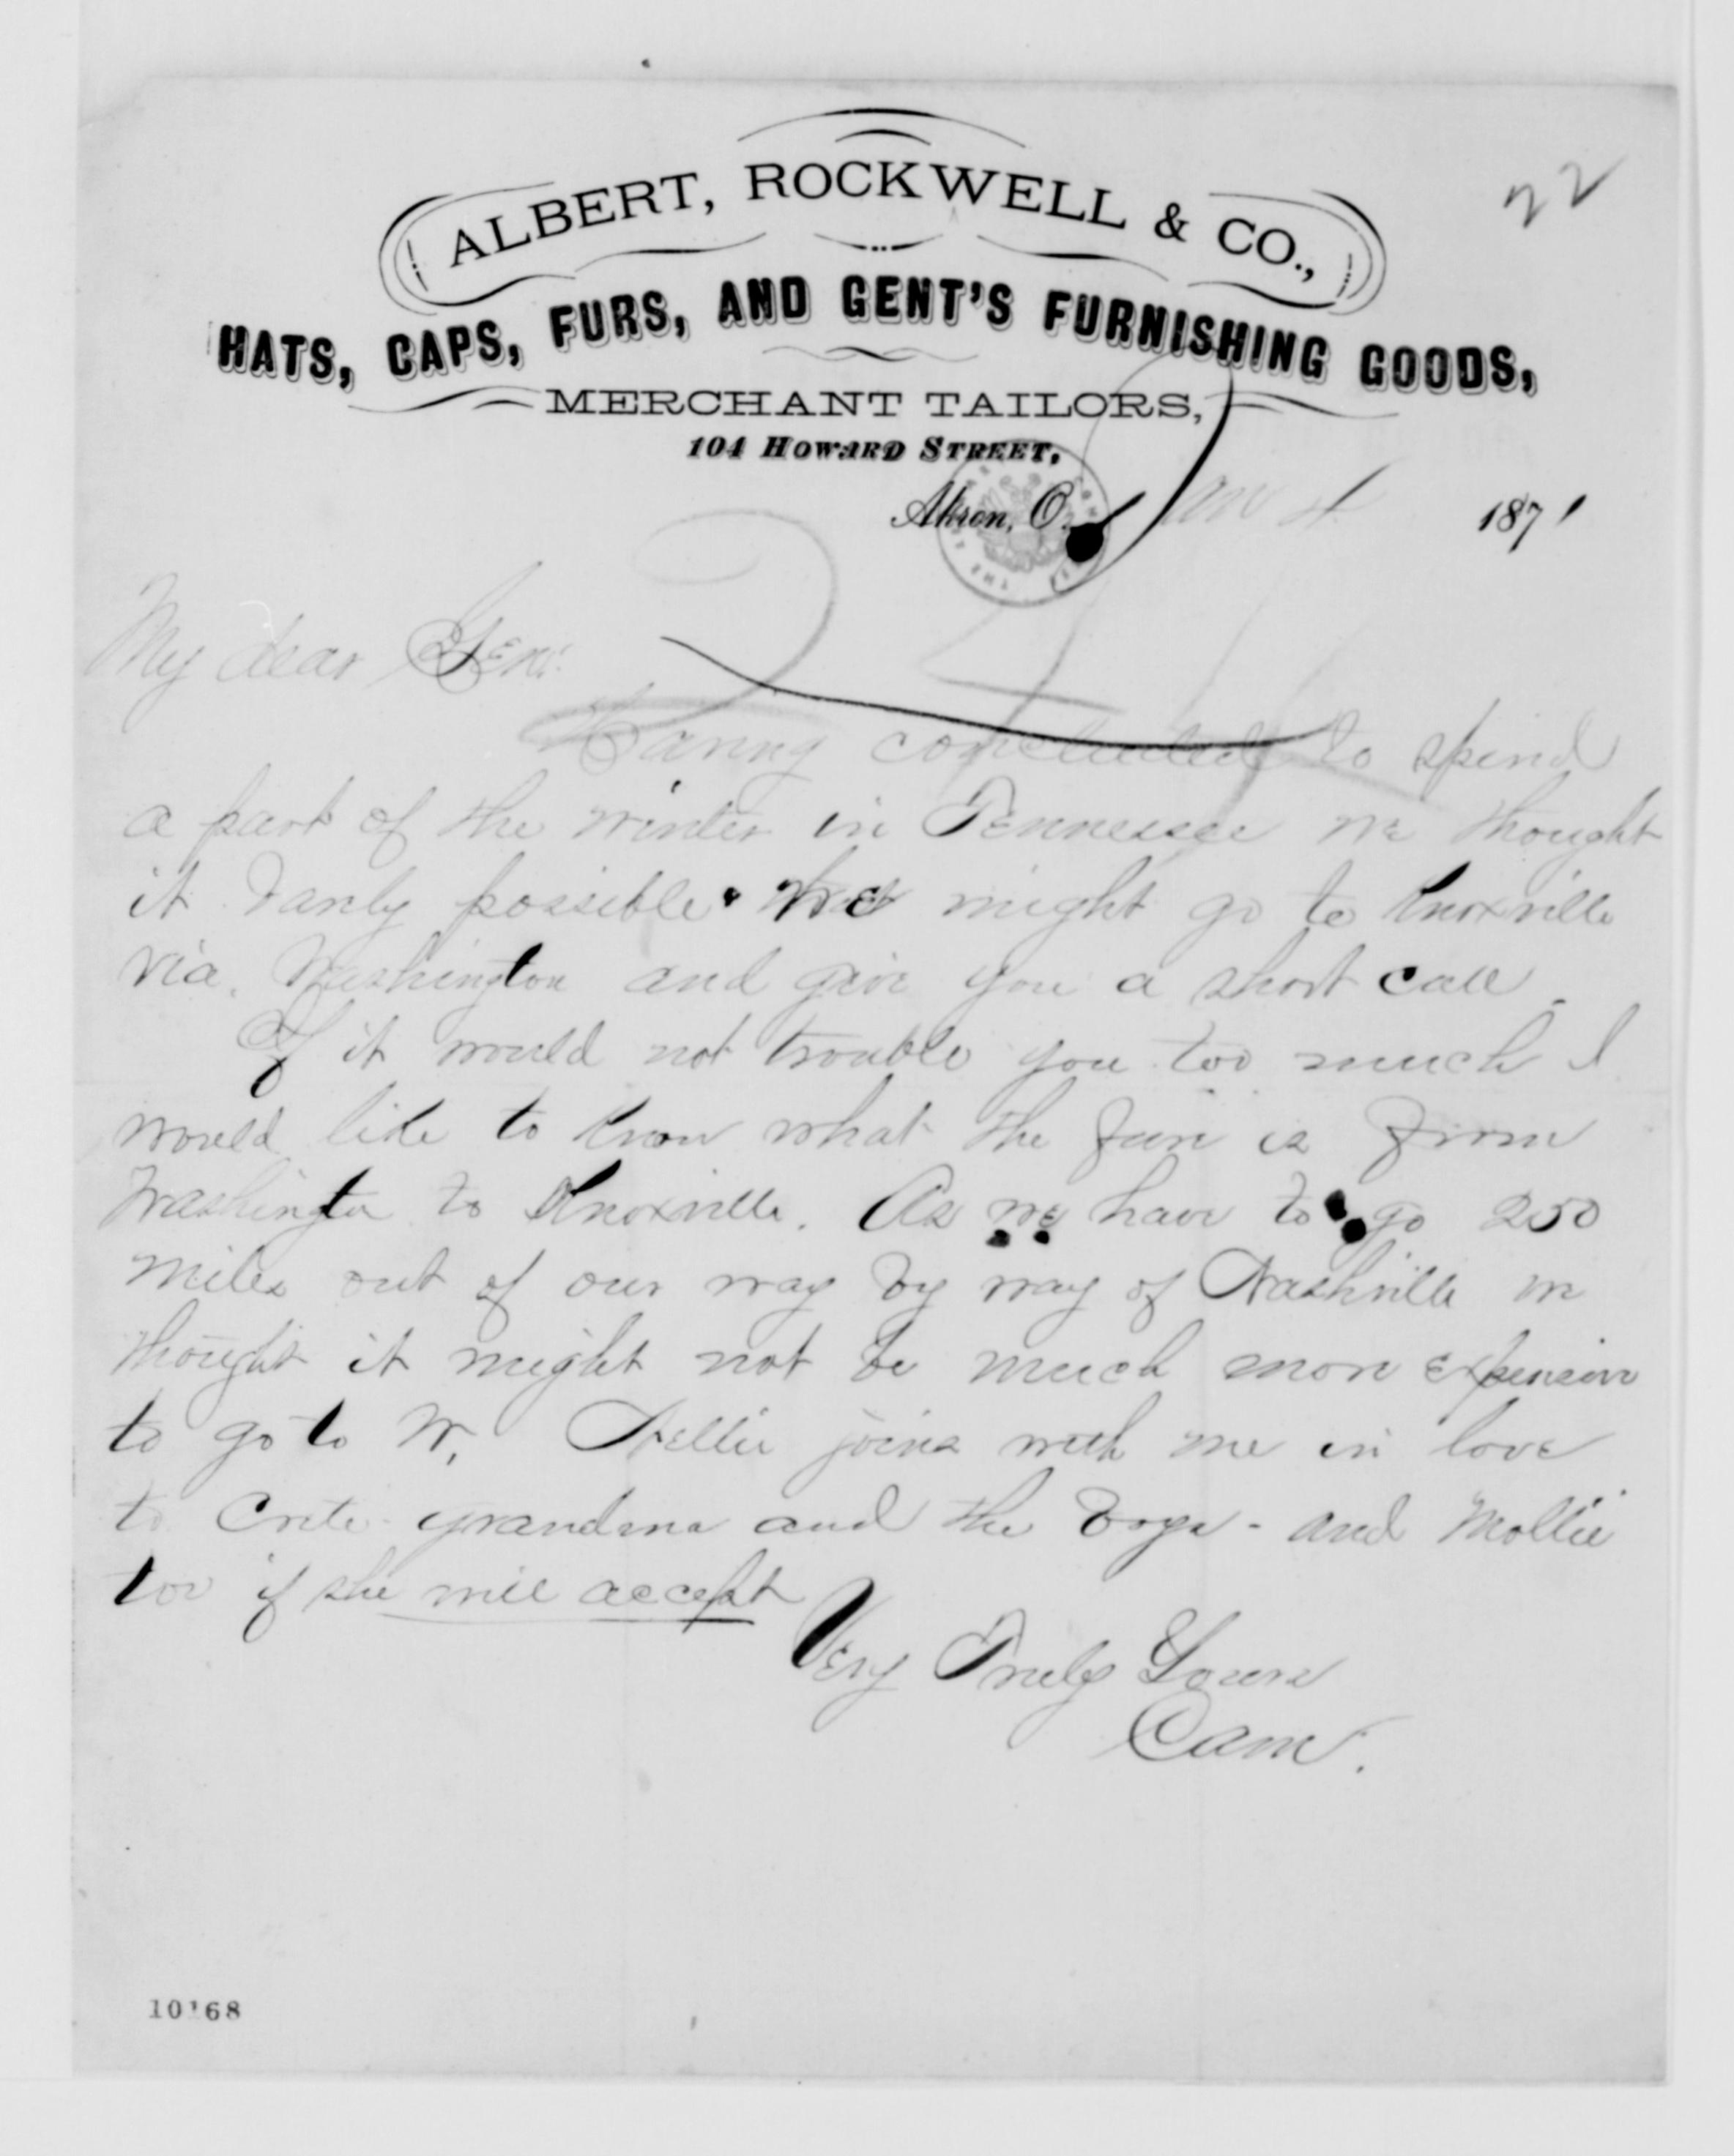 22
ALBERT, ROCKWELL & CO.,
HATS, CAPS, FURS, AND GENT'S FURNISHING GOODS,
MERCHANT TAILORS,
104 HOWARD STREET,
Akron, O. 1871
My dear Gen:
Having concluded to spend
a part of the winter in Tennessee we thought
it barely possible we might go to Knoxville
via. Washington and give you a short call.
If it would not trouble you too much I
would like to know what the fare is from
Washington to Knoxville. As we have to go 250
miles out of our way by way of Nashville we
thought it might not be much more expensive
to go to W. Nellie joins with me in love
to Crete grandma and the boys - and Mollie
too if she will accept
Very Truly Yours
Cam.
10168